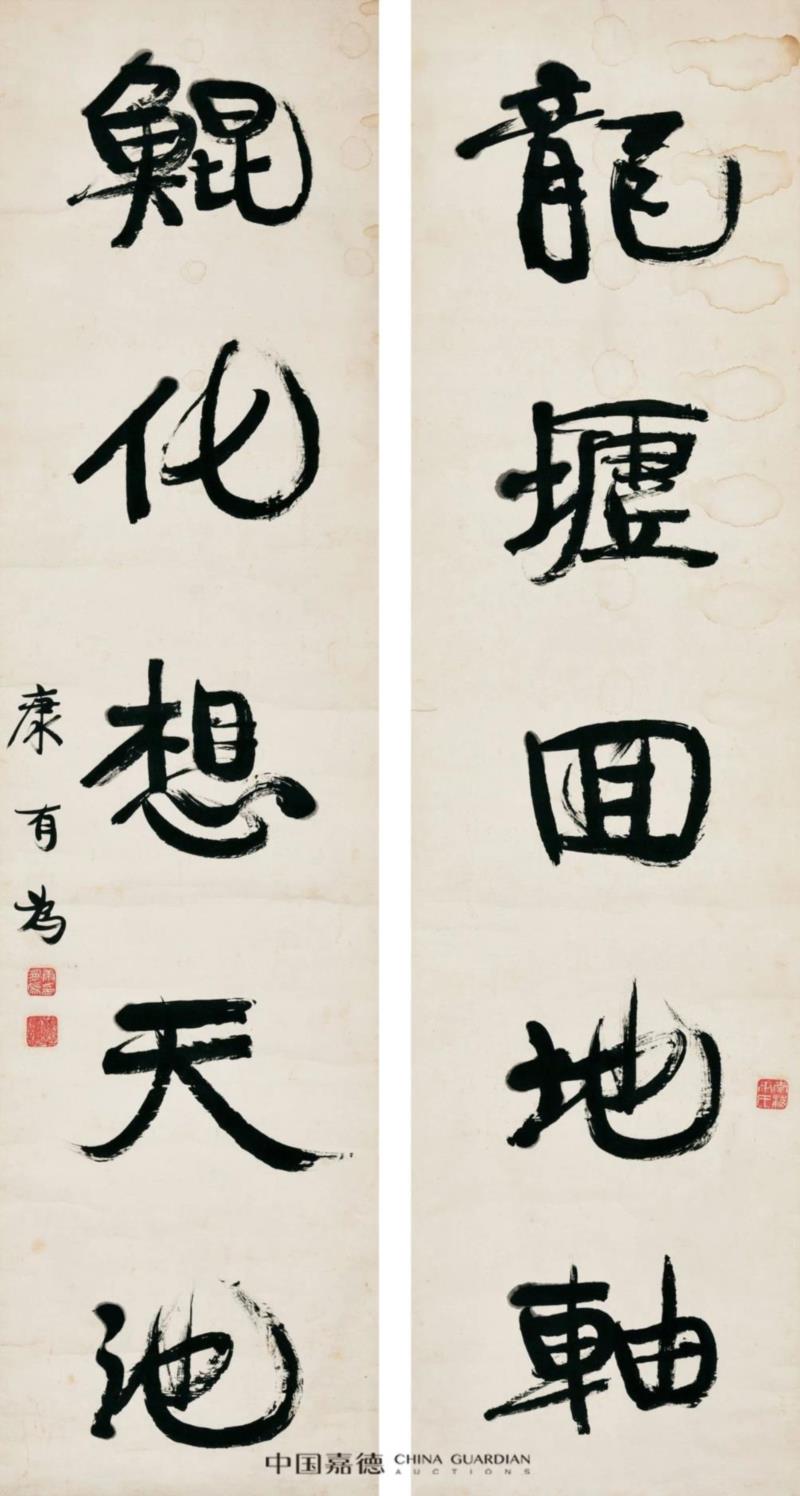 龍墟囬地軸
鯤化想天池
康有為
中国嘉德 CHINA GUARDIAN
AUCTIONS